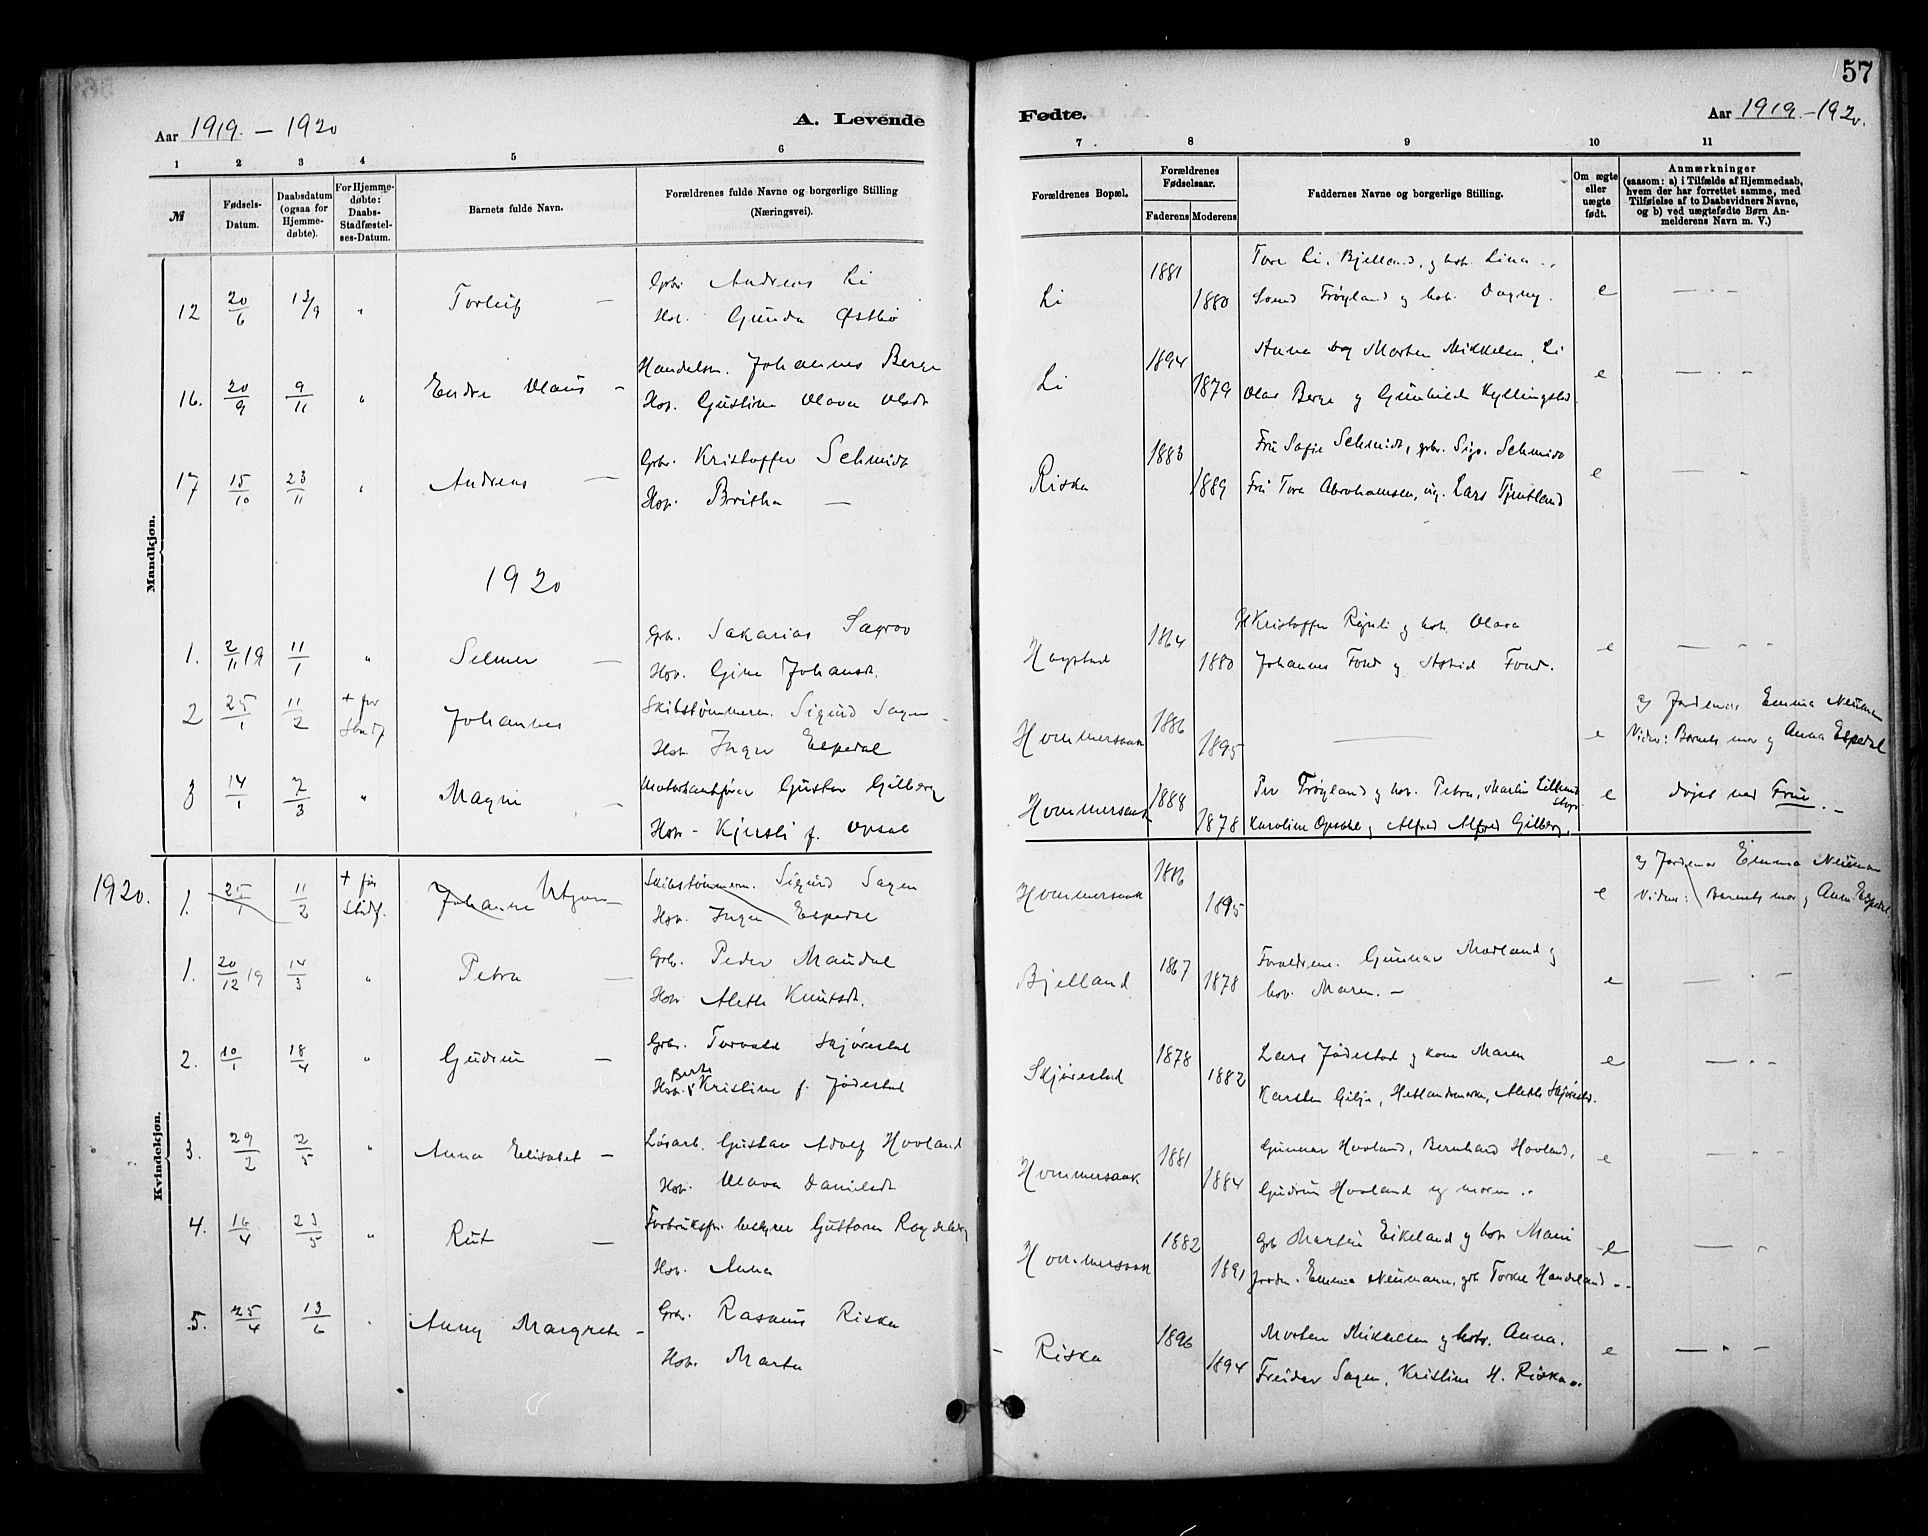 57
Aar 1919. – 1920
A. Levende
Fødte.
Aar 1919. – 1920.
1 2 3 4 5 6 7 8 9 10 11
№
Fødsels-Datum.
Daabsdatum (ogsaa for Hjemme-døbte).
For Hjemme-døbte: Daabs-Stadfæstel-ses-Datum.
Barnets fulde Navn.
Forældrenes fulde Navne og borgerlige Stilling (Næringsvei).
Forældrenes Bopæl.
Forældrenes Fødselsaar.
Faderens Moderens
Faddernes Navne og borgerlige Stilling.
Om ægte eller uægte født.
Anmærkninger
(saasom: a) i Tilfælde af Hjemmedaab, hvem der har forrettet samme, med Tilføielse af to Daabsvidners Navne, og b) ved uægtefødte Børn Anmelderens Navn m. V.)
Mandkjøn.
12 20/6 13/9 " Torleif – Gbr. Andreas Li
Hst. Gunda Østbø
Li 1881 1880 Tore Li, Bjelland, og hst. Lina
Svend Frøyland og hst. Dagny. e – " –
16. 20/9 9/11 " Endre Olaus – Handelsm. Johannes Berge
Hst. Gustine Olava Olsdt
Li 1894 1879 Anna og Morten Mikkelsen, Li
Olav Berge og Gunhild Kyllingstad. e – " –
17 15/10 23/11 " Andreas – Gbr. Kristoffer Schmidt
Hst. Britha –
Riska 1883 1889 Fru Sofie Schmidt, gbr. Sig. Schmidt
Fru Tora Abrahamsen, ug. Lars Tjentland e – "
1920
1. 2/11 19 11/1 " Selmer – Gbr. Sakarias
Hst. Gine Johansdt.
Hogstad 1864 1880 Kristoffer og hst. Olava
Johannes Foud og Astrid Foud. e – " "
2 25/1 11/2 + før Stadf Johannes Skibstømmerm. Sigurd Sagen
Hst. Inger Espedal
Hommersaak 1886 1895 – e a) Jordemor Emma Neuman
Vidner: Barnets mor og Anna Espedal
3 14/1 7/3 " Magne – Gustav Gilberg
Hst – Kjersti f. Opsal
Hommersaak 1888 1878 Per Frøyland og hst. Petra, Martin
Karoline Opsahl og Alfred Alfred Gilberg. e døpt ved Frue. –
Kvindekjøn.
1920. 1. 25/1 11/2 + før Stadf. Johanne Utgaar Skibstømmerm. Sigurd Sagen
Hst. Inger Espedal
Hommersaak 1886 1895 e a) Jordemor Emma Neuman
Vidner: Barnets mor og Anna Espedal
1. 20/12 19 14/3 " Petra – Gbr. Peder Maudal
Hst. Alette Knutsdt.
Bjelland 1867 1878 Forældrene. Gunnar Madland og
hst. Maren. – e – " –
2. 10/1 18/4 " Gudrun – Gbr. Torvald Skjørestad
Hst. Berta Kristine f. Jødestad
Skjørestad 1878 1882 Lars Jødestad og kone Maren
Karsten Gilje, Hetlandsmarka, Alette Skjørestad. e – " –
3. 29/2 2/5 " Anna Elisabet – Løsarb. Gustav Adolf Hovland
Hst. Olava Danielsdt
Hommersaak 1881 1884 Gunnar Hovland, Bernhard Hovland,
Gudrun Hovland og moren. e – " –
4. 16/4 23/5 " Rut – Gustaven
Hst. Anna
Hommersaak 1882 1891 Gbr Martin Eikeland og hst. Marie
Jordm. Emma Neumann, gbr Torkel Haneland e – "
5. 25/4 13/6 " Anny Margrete – Gbr. Rasmus Riska
Hst. Marta
Riska 1896 1894 Morten Mikkelsen og hstr. Anna.
Freidar Sagen, Kristine H. Riska e – " –